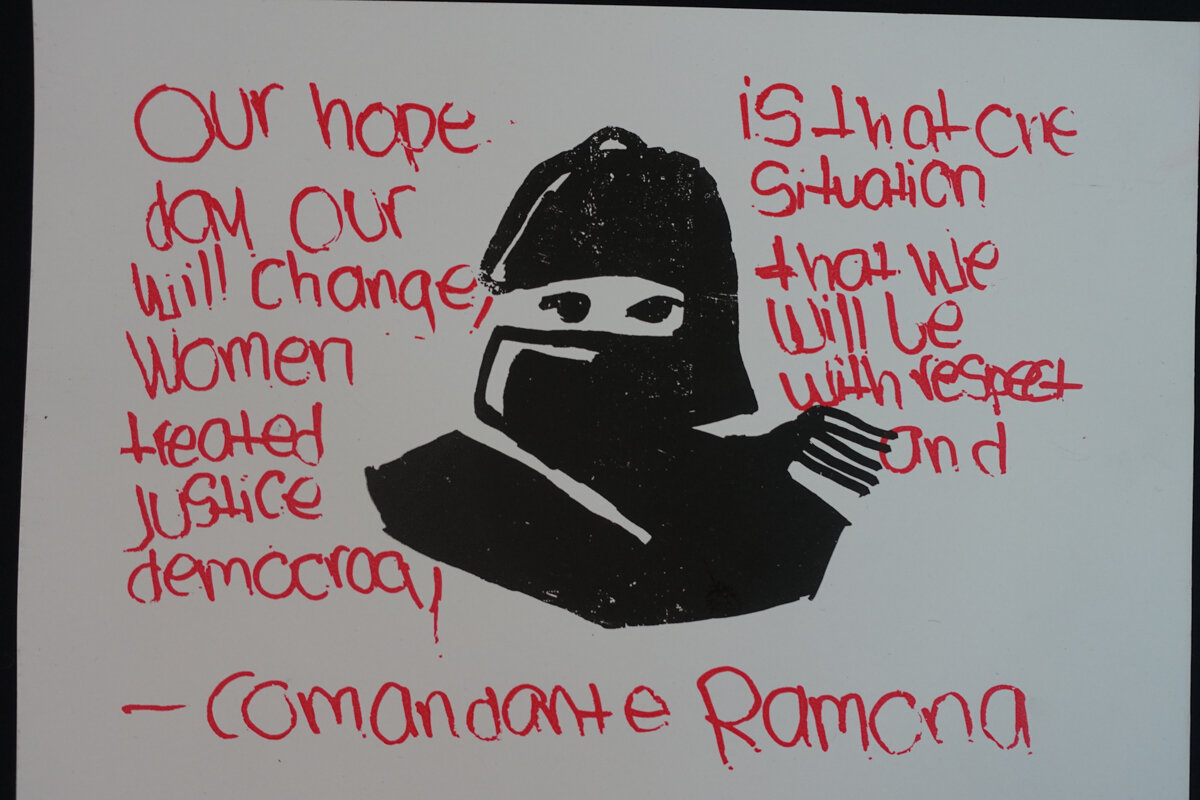 Our hope is that one
day our situation
will change, that we
Women will be
treated with respect
justice and
democracy
— Comandante Ramona